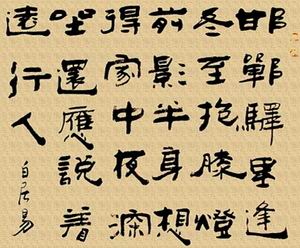 邯鄲驛里逢
冬至抱膝燈
前影半身想
得家中夜深
坐還應說着
遠行人
白居易